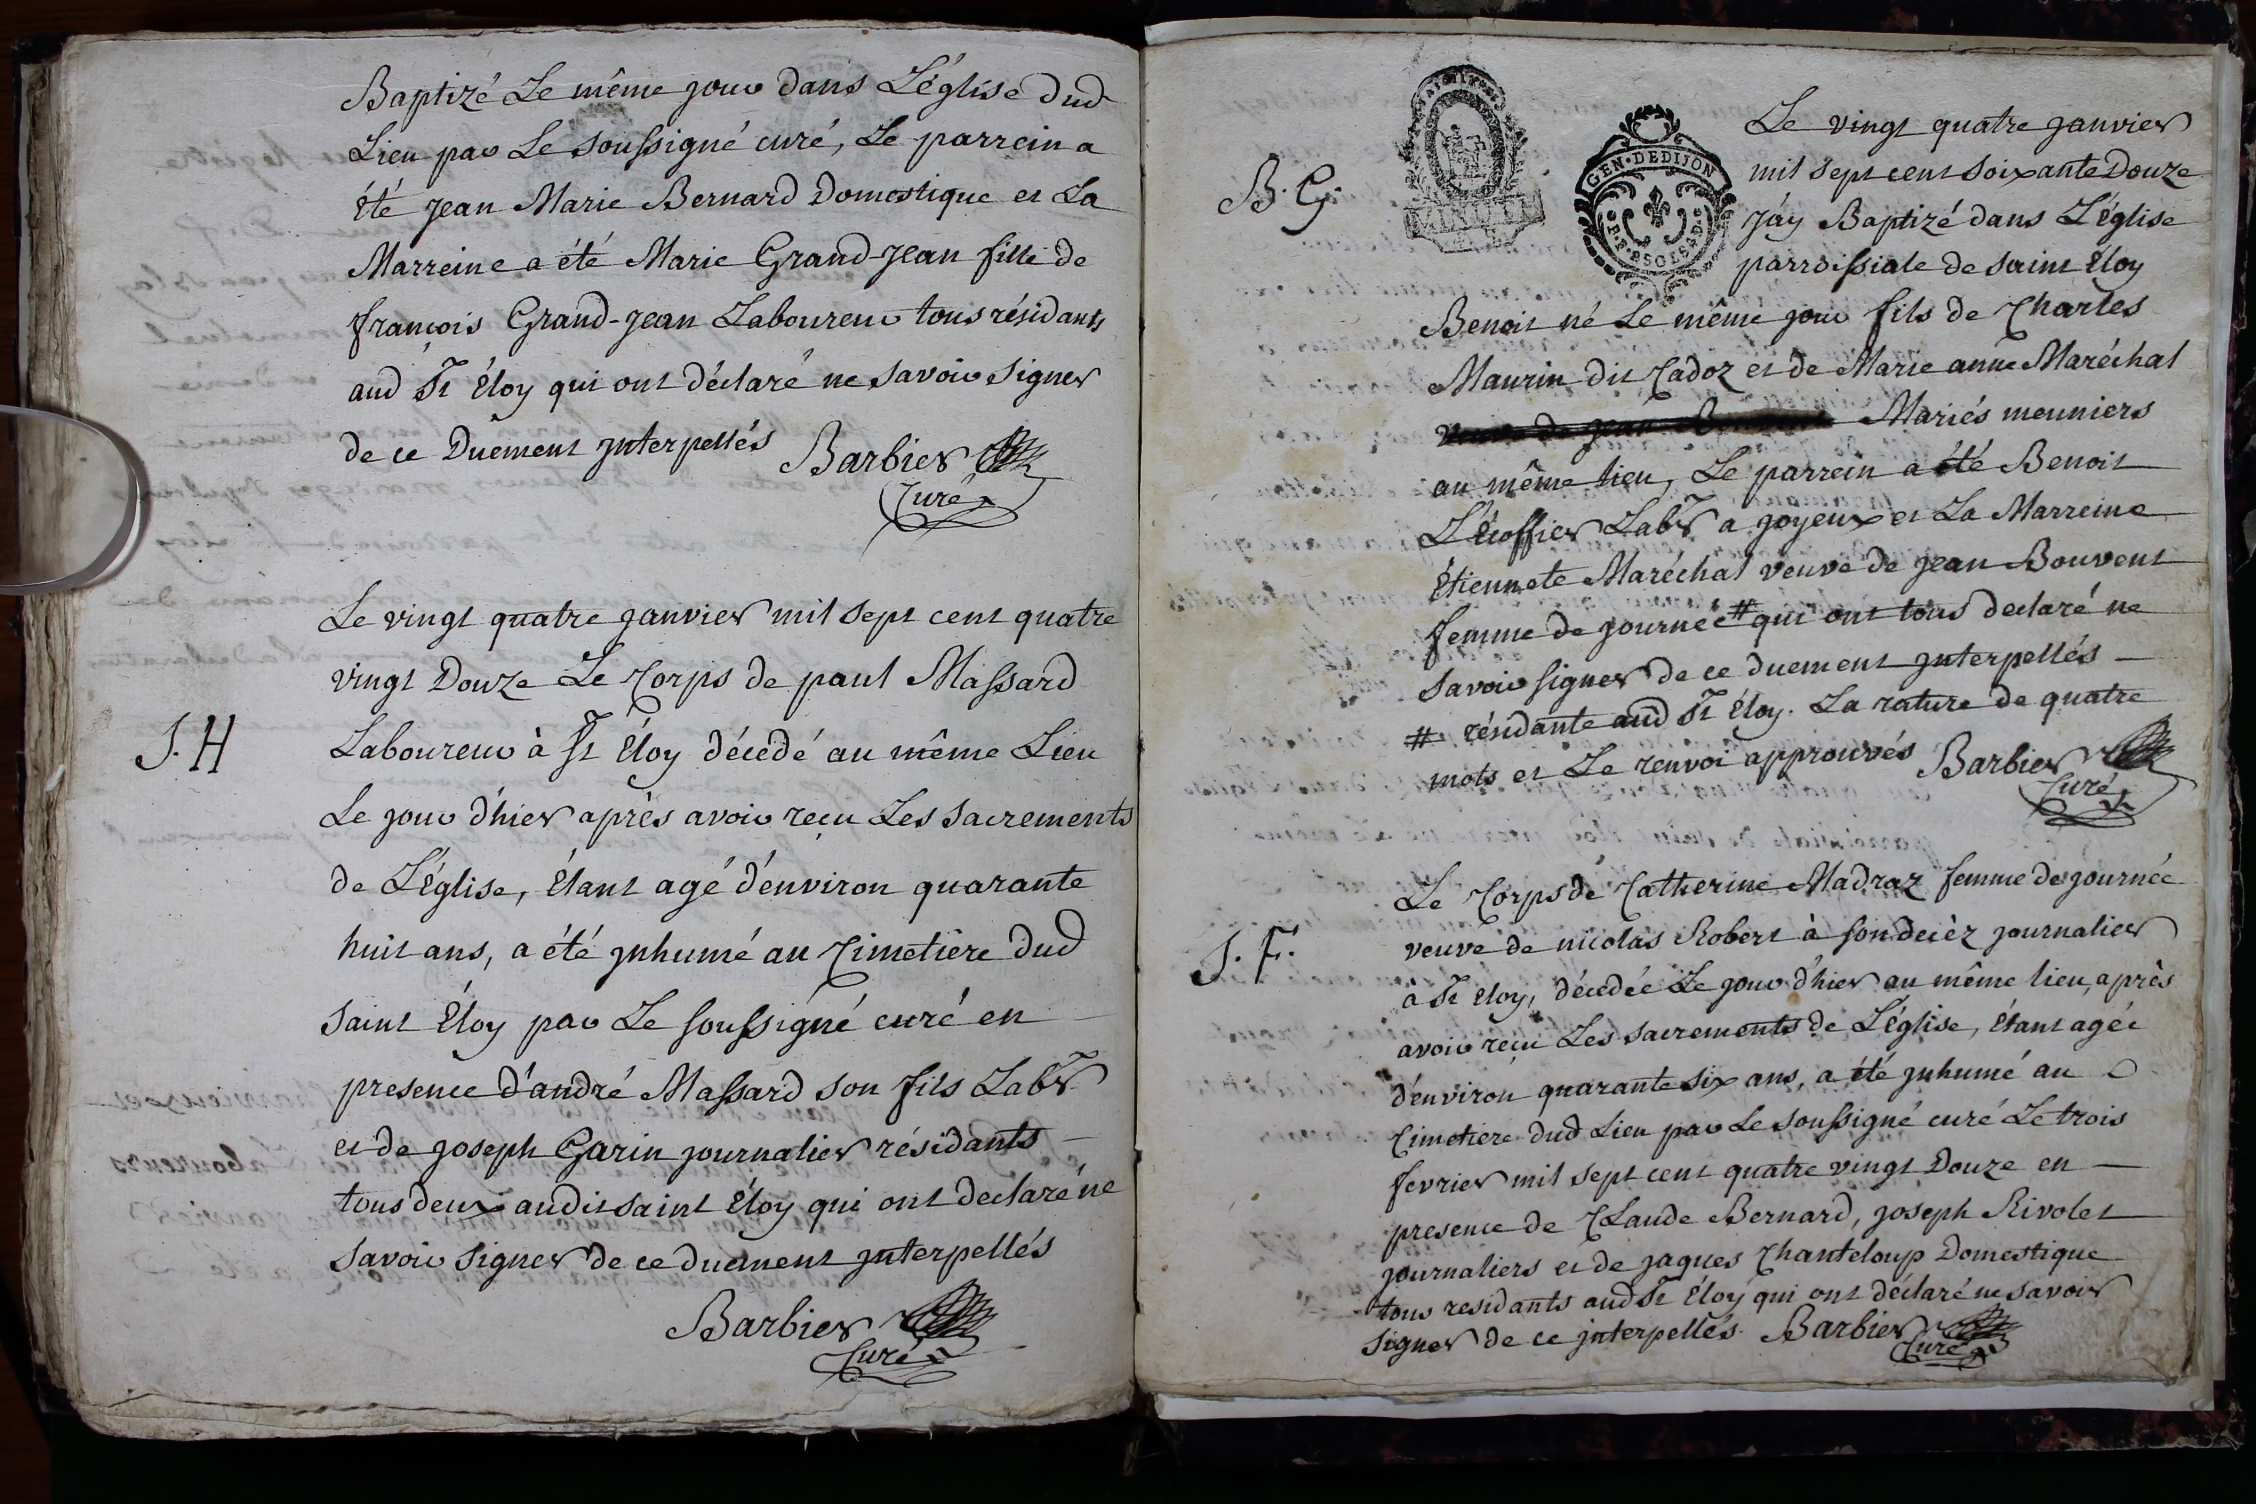 Baptizé Le même jour dans L'église dud
Lieu par Le soussigné curé, Le parrein a
été jean Marie Bernard Domestique et La
Marreine a été Marie Grand-jean fille de
françois Grand-jean Laboureur tous résidants
aud St Éloy qui ont déclaré ne savoir signer
de ce Duement jnterpellés Barbier
Curé
Le vingt quatre janvier mil sept cent quatre
vingt Douze Le Corps de paul Massard
J. H
Laboureur à St Éloy décedé au même Lieu
Le jour d'hier après avoir reçu Les sacrements
de L'église, étant agé d'environ quarante
huit ans, a été jnhumé au Cimetière dud
saint Éloy par Le soussigné curé en
presence d'andré Massard son fils Labr
et de joseph Garin journalier résidants
tous deux audit saint Éloy qui ont declaré ne
savoir signer de ce duement jnterpellés
Barbier
Curé
GEN·DEDIJON
Le vingt quatre janvier
mil sept cent soixante Douze
B. G.
j'ay Baptizé dans L'église
parroissiale de saint Éloy
Benoit né Le même jour fils de Charles
Maurin dit Cadoz et de Marie anne Maréchal
Mariés meuniers
au même lieu, Le parrein a été Benoit
L'Écoffier Labr a joyeux et La Marreine
Étiennete Maréchal veuve de jean Bouvent
femme de journéé # qui ont tous declaré ne
savoir signer de ce duement jnterpellés
# résidante aud St Éloy. La rature de quatre
mots et Le renvoi approuvés Barbier
Curé
Le Corps de Catherine Madraz femme de journée
J. F.
veuve de nicolas Robert à son decèz journalier
à St eloy, décedée Le jour d'hier au même lieu, après
avoir reçu Les sacrements de L'église, étant agée
d'environ quarante six ans, a été jnhumé au
Cimetiere dud Lieu par Le soussigné curé Le trois
fevrier mil sept cent quatre vingt Douze en
presence de Claude Bernard, joseph Rivolet
journaliers et de jaques Chanteloup Domestique
tous residants aud St Éloy qui ont déclaré ne savoir
signer de ce jnterpellés. Barbier
Curé